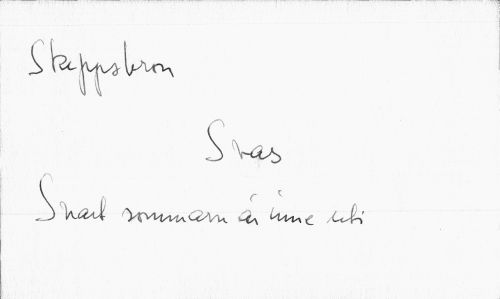 Skeppsbron
Svas
Snart sommarn är inne uti